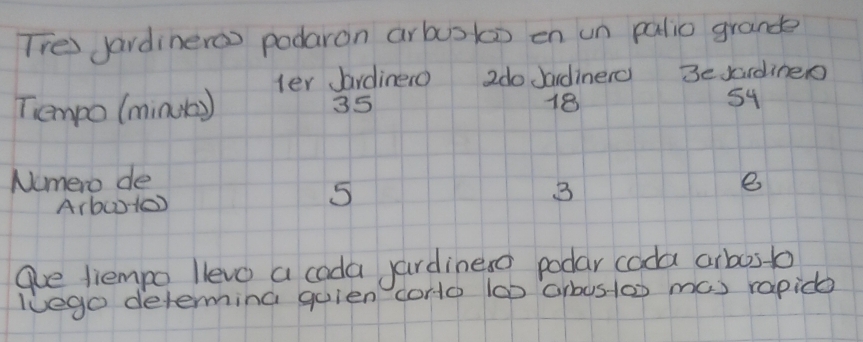 Tres jardineros podaron arbustos en un patio grande
1er Jardinero 2do Jardinero 3e jardinero
Tiempo (minutos) 35 18 54
Numero de
Arbustos 5 3 6
Que tiempo llevo a cada jardinero podar cada arbusto
luego determina quien corto los arbustos mas rapido